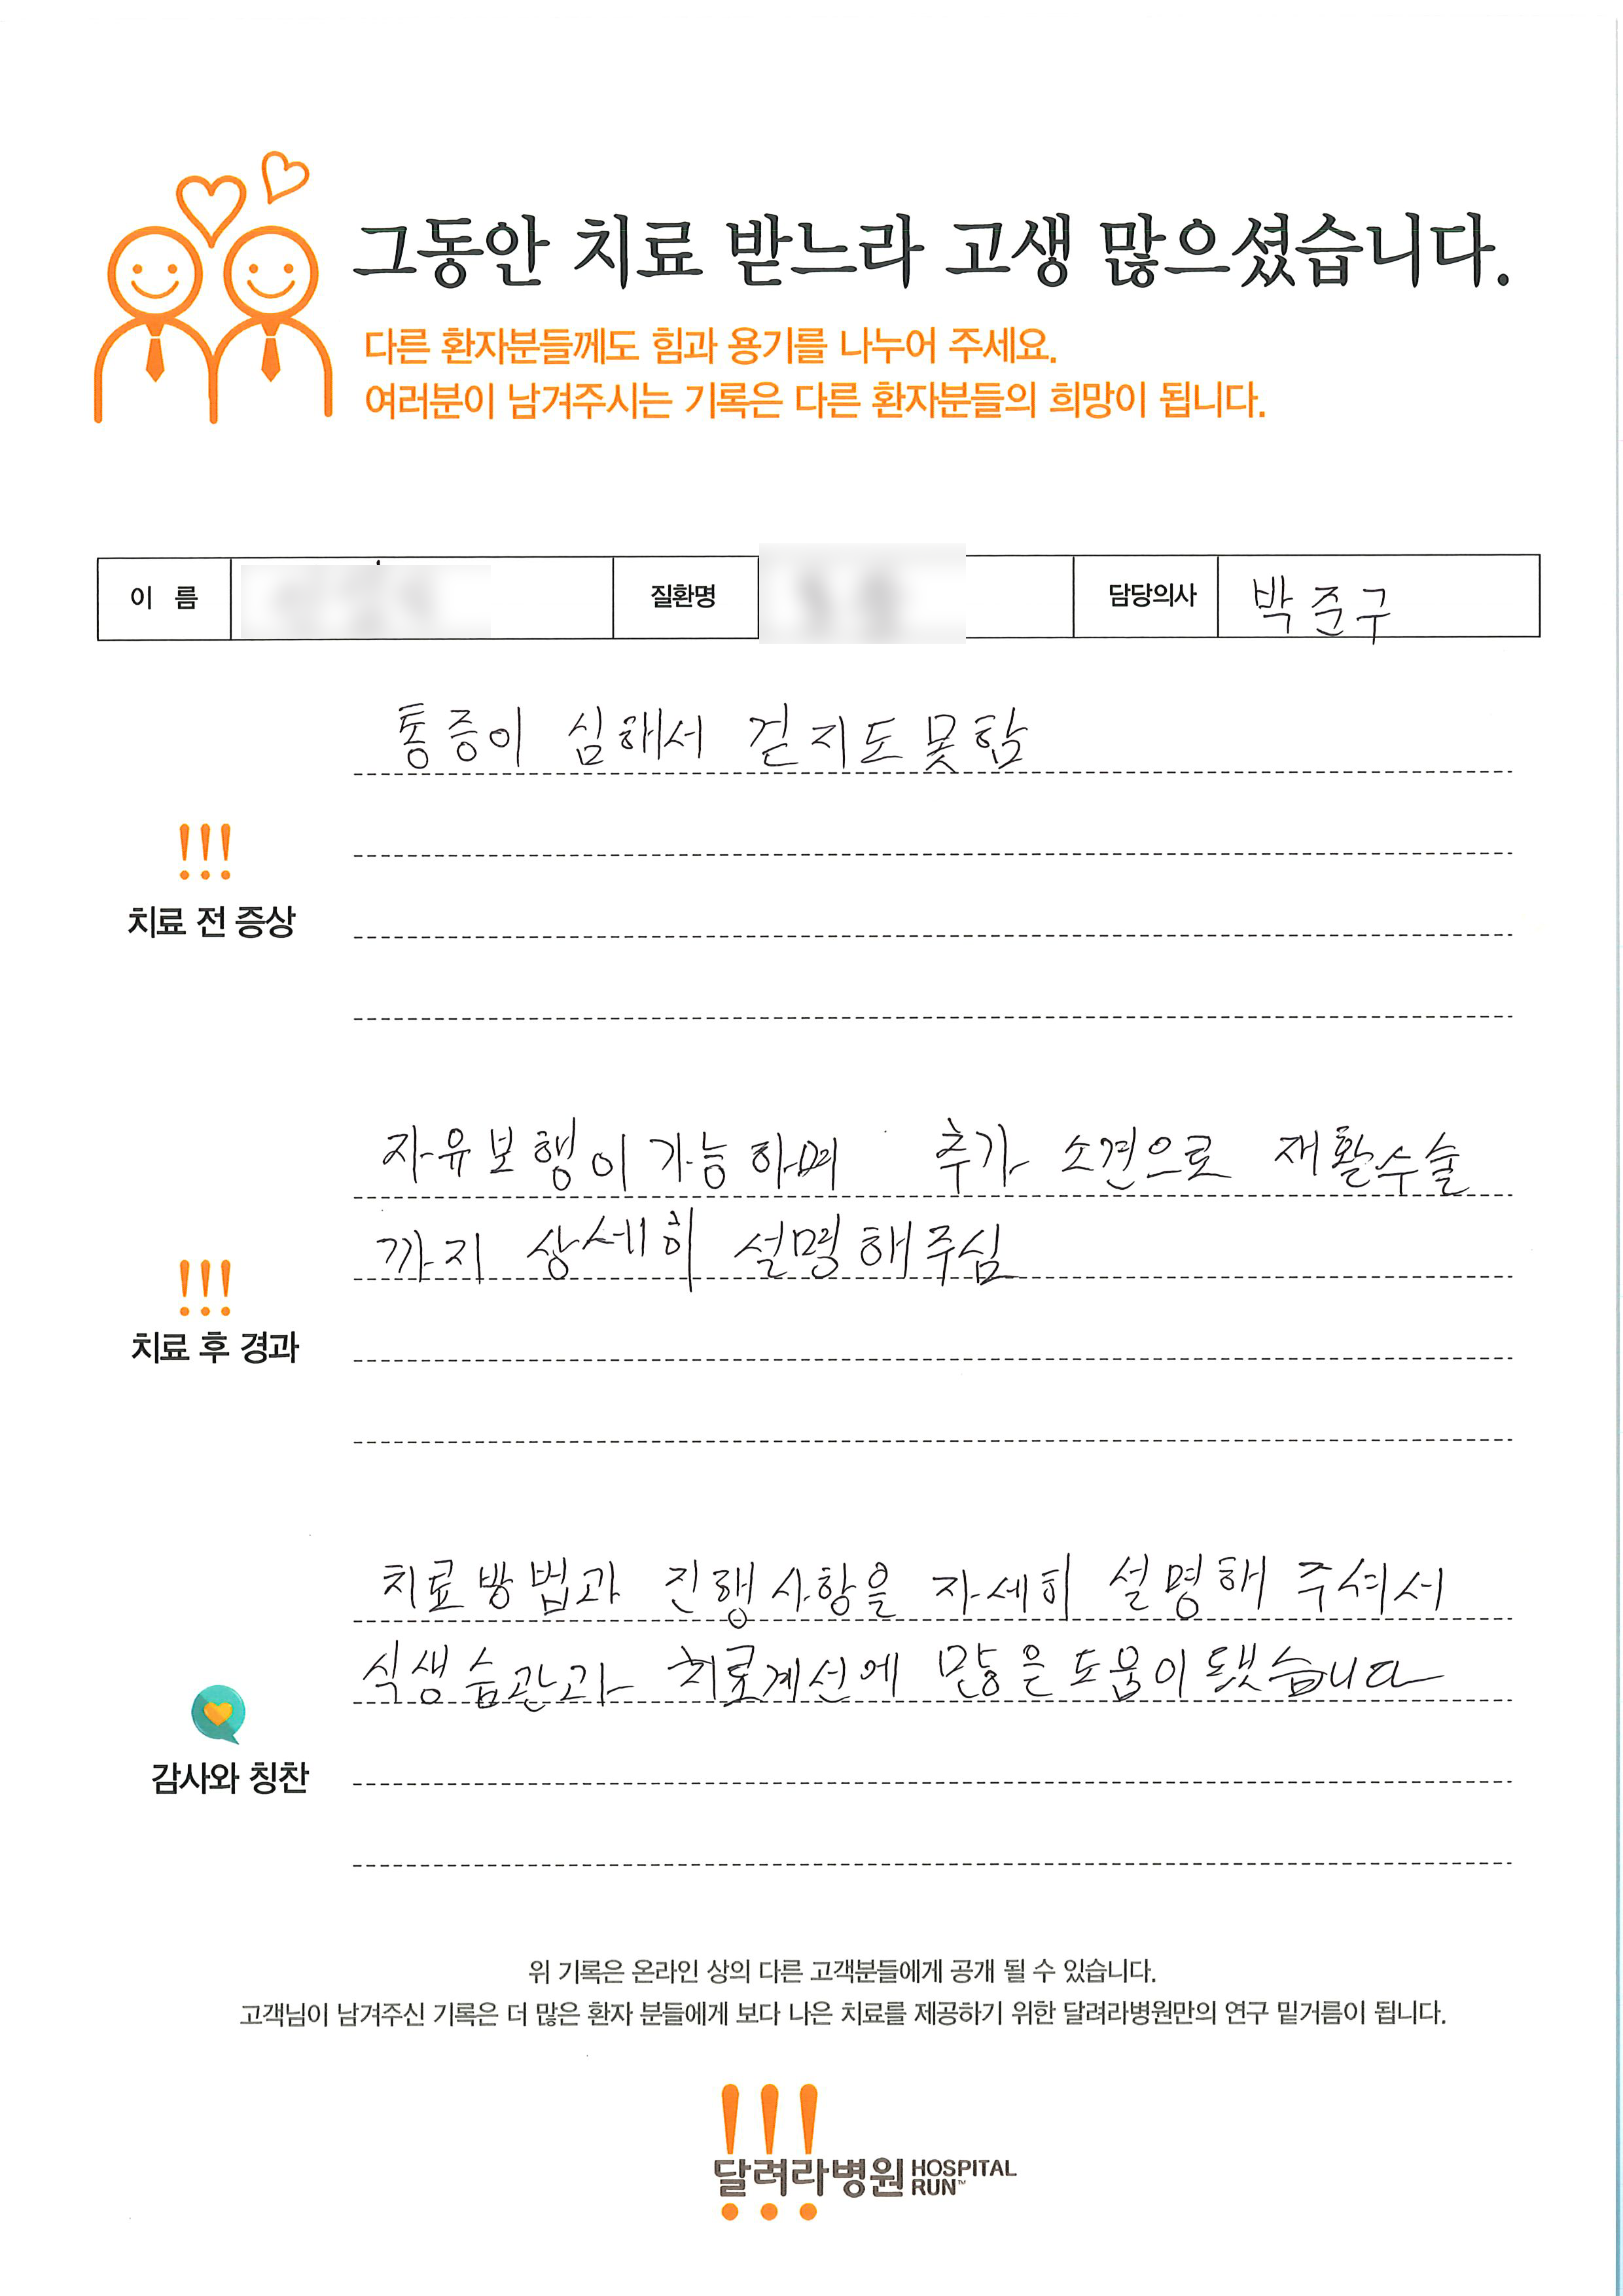 그동안 치료 받느라 고생 많으셨습니다.
다른 환자분들께도 힘과 용기를 나누어 주세요.
여러분이 남겨주시는 기록은 다른 환자분들의 희망이 됩니다.
이 름 질환명 담당의사 박준구
통증이 심해서 걷지도못함
!!!
치료 전 증상
자유보행이 가능하며 추가 소견으로 재활수술
까지 상세히 설명해주심
!!!
치료 후 경과
치료방법과 진행사항을 자세히 설명해 주셔서
식생습관과 치료계선에 많은 도움이 됐습니다
감사와 칭찬
위 기록은 온라인 상의 다른 고객분들에게 공개 될 수 있습니다.
고객님이 남겨주신 기록은 더 많은 환자 분들에게 보다 나은 치료를 제공하기 위한 달려라병원만의 연구 밑거름이 됩니다.
!!!
달려라병원 HOSPITAL RUN™